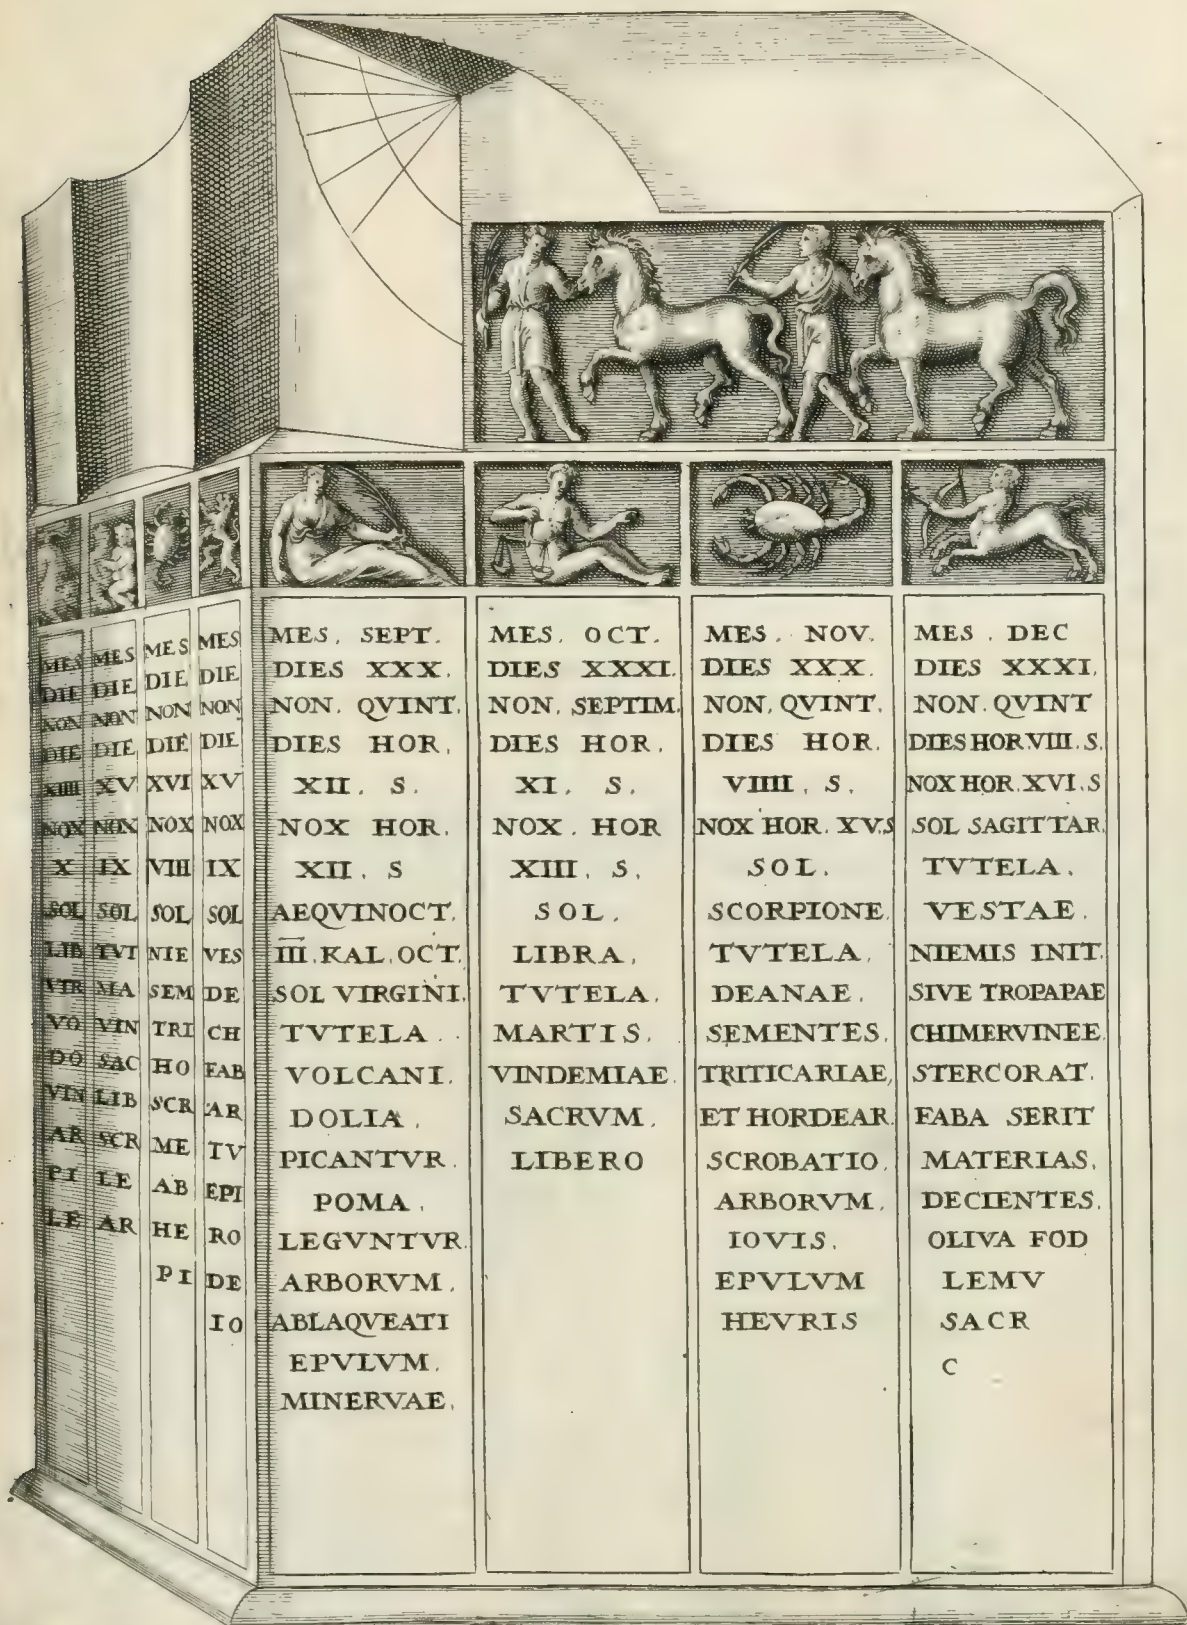 MES
DIE
NON
DIE
XIIII
NOX
X
SOL
LIB
VIR
VO
DO
VIN
AR
PI
LE
MES
DIE
NON
DIE
XV
NOX
IX
SOL
TVT
MA
VIN
SAC
LIB
SCR
LE
AR
MES
DIE
NON
DIE
XVI
NOX
VIII
SOL
NIE
SEM
TRI
HO
SCR
ME
AB
HE
PI
MES
DIE
NON
DIE
XV
NOX
IX
SOL
VES
DE
CH
FAB
AR
TV
EPI
RO
DE
IO
MES. SEPT.
DIES XXX.
NON. QVINT.
DIES HOR.
XII. S.
NOX HOR.
XII. S
AEQVINOCT.
III. KAL. OCT.
SOL VIRGINI.
TVTELA.
VOLCANI.
DOLIA.
PICANTVR.
POMA.
LEGVNTVR.
ARBORVM.
ABLAQVEATI
EPVLVM.
MINERVAE.
MES. OCT.
DIES XXXI.
NON. SEPTIM.
DIES HOR.
XI. S.
NOX. HOR
XIII. S.
SOL.
LIBRA.
TVTELA.
MARTIS.
VINDEMIAE.
SACRVM.
LIBERO
MES. NOV.
DIES XXX.
NON. QVINT.
DIES HOR.
VIIII. S.
NOX HOR. XV.S
SOL.
SCORPIONE.
TVTELA.
DEANAE.
SEMENTES.
TRITICARIAE,
ET HORDEAR.
SCROBATIO.
ARBORVM.
IOVIS.
EPVLVM
HEVRIS
MES. DEC
DIES XXXI.
NON. QVINT
DIES HOR VIII. S.
NOX HOR. XVI. S
SOL SAGITTAR.
TVTELA.
VESTAE.
NIEMIS INIT.
SIVE TROPAPAE
CHIMERVINEE.
STERCORAT.
FABA SERIT
MATERIAS.
DECIENTES.
OLIVA FOD
LEMV
SACR
C